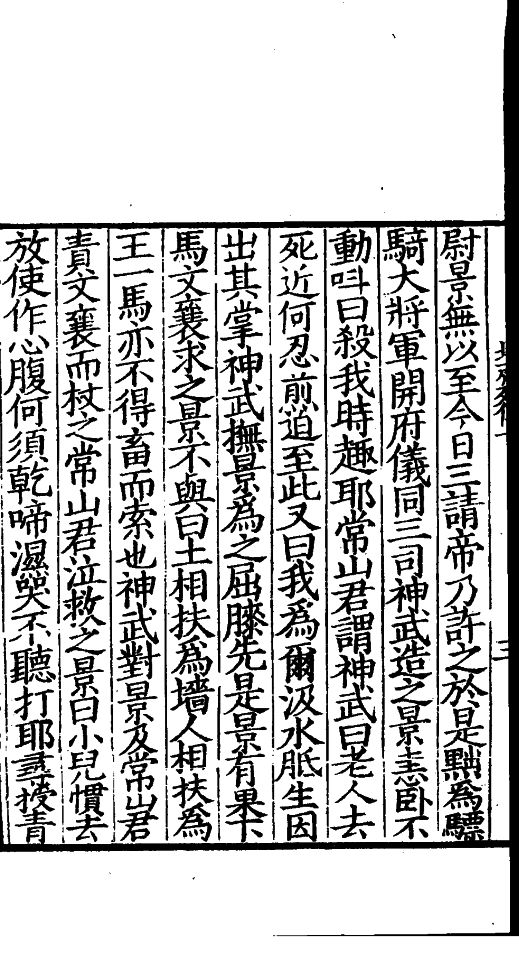 尉景無以至今日三請帝乃許之於是黜為驃
騎大將軍開府儀同三司神武造之景恚卧不
動叫曰殺我時趣耶常山君謂神武曰老人去
死近何忍煎迫至此又曰我為爾汲水胝生因
出其掌神武撫景為之屈膝先是景有果下
馬文襄求之景不與曰土相扶為墻人相扶為
王一馬亦不得畜而索也神武對景及常山君
責文襄而杖之常山君泣救之景曰小兒慣去
放使作心腹何須乾啼濕哭不聽打耶尋授青
三